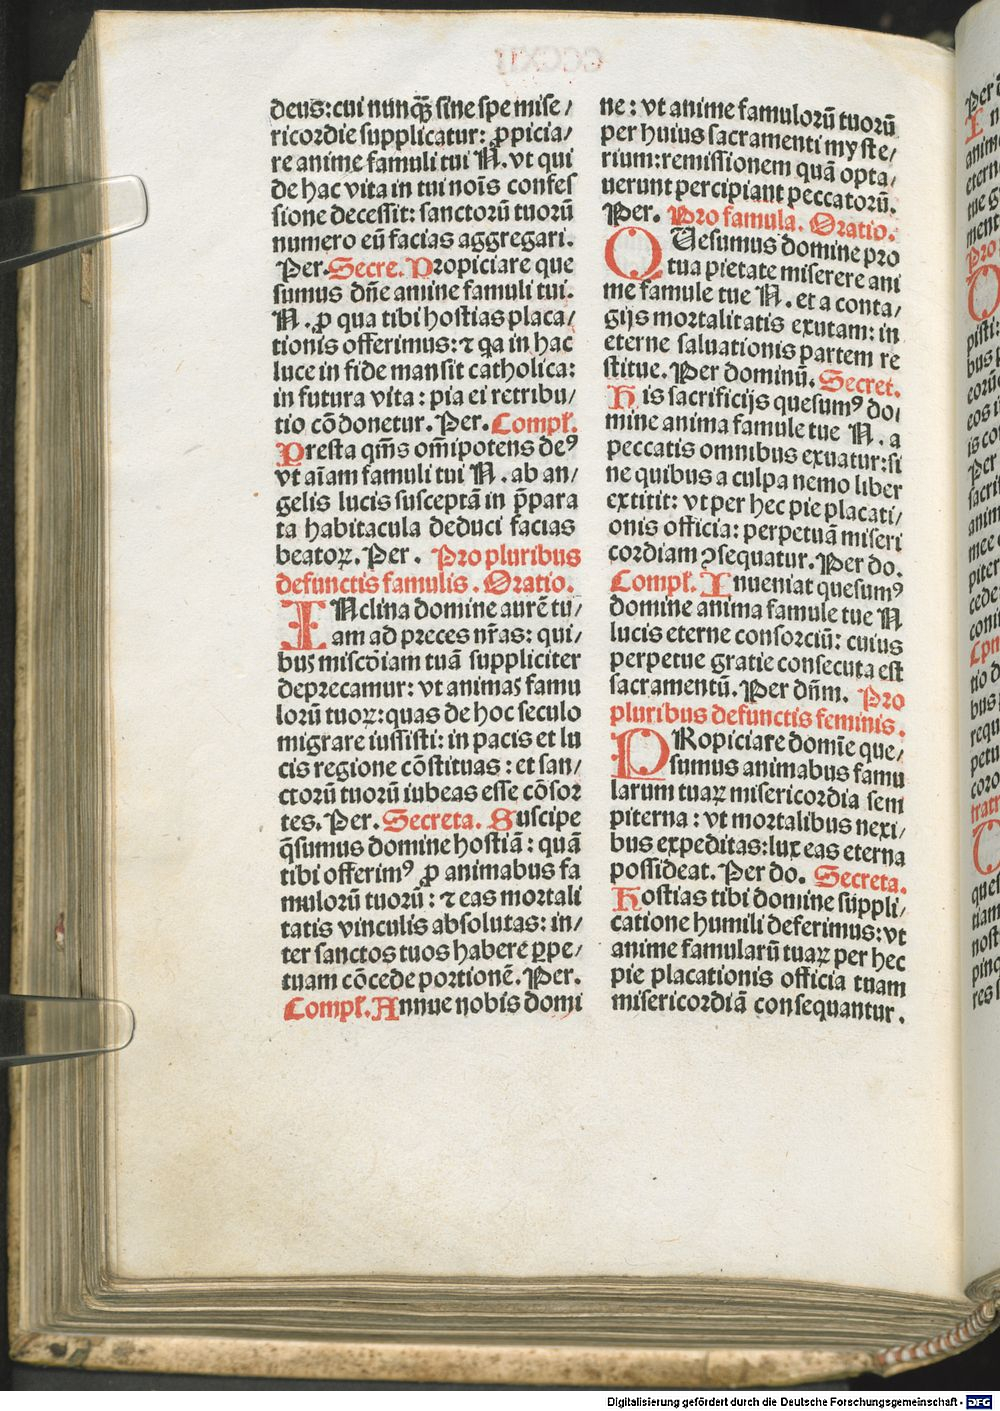 deus:cui nunqȝ̃ sine spe mise/
ricordie supplicatur: ꝓpicia/
re anime famuli tui N. vt qui
de hac vita in tui noĩs confes
sione decessit: sanctorũ tuorũ
numero eũ facias aggregari.
Per. Secre. Propiciare que
sumus dñe amine famuli tui.
N. ꝓ qua tibi hostias placa/
tionis offerimus: ⁊ q̃a in hac
luce in fide mansit catholica:
in futura vita: pia ei retribu/
tio cõdonetur. Per. Compl̃.
Presta qm̃s om̃ipotens deꝰ
vt aĩam famuli tui N. ab an/
gelis lucis susceptã in p̃para
ta habitacula deduci facias
beatoꝝ. Per. Pro pluribus
defunctis famulis. Oratio.
INclina domine aurẽ tu/
am ad preces nr̃as: qui/
bus miscõiam tuã suppliciter
deprecamur: vt animas famu
lorũ tuoꝝ: quas de hoc seculo
migrare iussisti: in pacis et lu
cis regione cõstituas: et san/
ctorũ tuorũ iubeas esse cõsor
tes. Per. Secreta. Suscipe
q̃sumus domine hostiã: quã
tibi offerimꝰ ꝓ animabus fa
mulorũ tuorũ: ⁊ eas mortali
tatis vinculis absolutas: in/
ter sanctos tuos habere ꝑpe/
tuam cõcede portionẽ. Per.
Compl̃. Annue nobis domi
ne: vt anime famulorũ tuorũ
per huius sacramenti myste/
rium: remissionem quã opta/
uerunt percipiant peccatorũ.
Per. Pro famula. Oratio.
QVesumus domine pro
tua pietate miserere ani
me famule tue N. et a conta/
gijs mortalitatis exutam: in
eterne saluationis partem re
stitue. Per dominũ. Secret.
His sacrificijs quesumꝰ do/
mine anima famule tue N. a
peccatis omnibus exuatur: si
ne quibus a culpa nemo liber
extitit: vt per hec pie placati/
onis officia: perpetuã miseri
cordiam ↄsequatur. Per do.
Compl̃. Inueniat quesumꝰ
domine anima famule tue N
lucis eterne consorciũ: cuius
perpetue gratie consecuta est
sacramentũ. Per dñm. Pro
pluribus defunctis feminis.
PRopiciare domĩe que/
sumus animabus famu
larum tuaꝝ misericordia sem
piterna: vt mortalibus nexi/
bus expeditas: lux eas eterna
possideat. Per do. Secreta.
Hostias tibi domine suppli/
catione humili deferimus: vt
anime famularũ tuaꝝ per hec
pie placationis officia tuam
misericordiã consequantur.
Digitalisierung gefördert durch die Deutsche Forschungsgemeinschaft - DFG